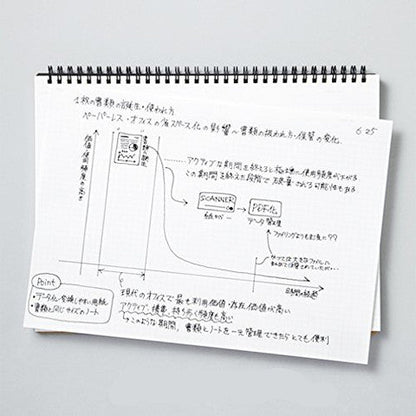 1枚の書類の誕生・使われ方
ペーパーレス・オフィスの省スペース化の影響〜書類の扱われ方・保管の変化
6.25
価値・使用頻度の高さ
書類誕生
アクティブな期間を終えると極端に使用頻度が下がる
この期間を終えた段階で破棄される可能性もある
SCANNER
PDF化
データ管理
ファイリングよりもお手軽??
時間の経過
Point
・データ化・整頓しやすい用紙
・書類と同じサイズのノート
現代のオフィスで最も利用価値・存在価値が高い
アクティブ、検索、持ち歩く頻度も高い
このような期間、書類とノートを一元管理できたらとても便利